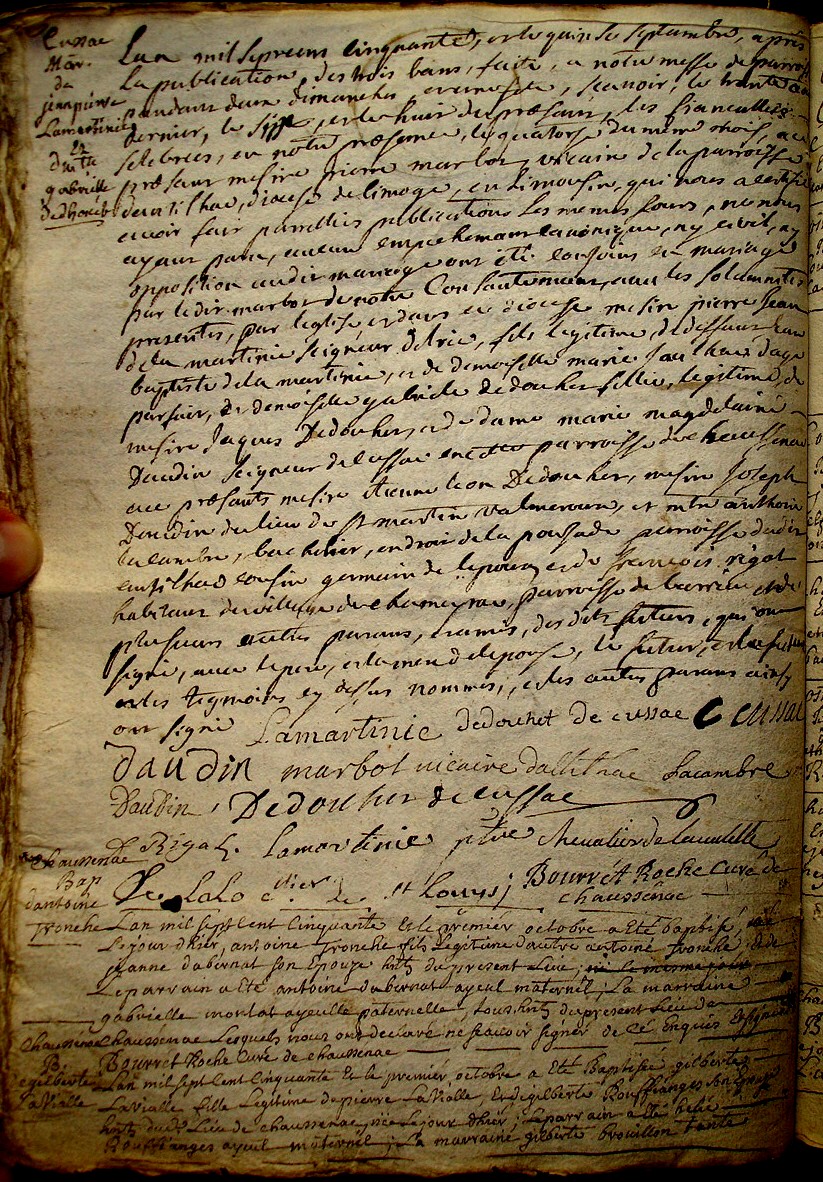 Cussac
Mar.
de
jean pierre
Lamartinie
et
gabrielle
Lan mil sept cens Cinquante, et le quinse septembre, apres
la publication, des trois bans, faite, a notre messe de parroisse
pendant deux dimanches, et une feste, scavoir, le trante
dernier, le six, et le huit du présant, les fiancalles
selebrées, en notre présence, le quatorse du meme mois, et
présant mesire pierre marbot, vicaire de la parroisse
diocese de limoge, en limousin, qui nous a certifié
avoir fait pareilles publications les memes jours, ne nous
ayant paru, aucun empechemant canonique, ny civil, ny
opposition audit mariage ont été conjoins en mariage
par ledit marbot de notre Consantemant, avec les solamnités
presentes, par leglise, et dans ce diocese mesire pierre Jean
dela martinie seigneur fils legitime de deffunt Jean
baptiste dela martinie, et de demoiselle marie
parfait, et demoiselle gabrielle Dedouhet fillie, legitime, de
mesire Jaques Dedouhet, et de dame marie magdelaine
Daudin seigneur de Cussac parroisse de Chaussenac
présants mesire etienne leon Dedouhet, mesire Joseph
Daudin du lieu de st martin valmeroux, et mtre anthoine
lacambre, bachelier, en droit de la parroisse dudit
cousin germain de lepoux et de francois rigal
habitant du village de parroisse de barriac et de
plusieurs autres parans, et amis, des dits futurs, qui ont
signé, avec le pere, et la mere de lepouse, le futur, et la future
et les tegmoins cy dessus nommés, et les autres parans ainsy
ont signé Lamartinie dedouhet de cussac Cussac
daudin marbot vicaire dalithac Lacambre
Daudin, Dedouhet de cussac
D Rigal. Lamartinie ptre chevalier de
De LaLo de st Louys; Bourrét Roche Curé de
chaussenac
chaussenac
Bap
dantoine
Tronche
Lan mil sept Cent Cinquante Et le premiér octobre a Eté baptisé, né
Le jour dhier, antoine Tronche fils Legitime dautre antoine Tronche et de
jeanne dabernat son Epouze hnts du present Lieu;
Le parrain a Eté antoine dabernat ayeul maternél; La marraine
gabrielle montat ayeulle paternelle, tous hnts du present Lieu de
Chaussenac Lesquels nous ont déclaré ne scavoir signér de Ce Enquis
Bourrét Roche Curé de chaussenac
Chaussenac
B
gilberte
LaVialle
Lan mil sept Cent Cinquante Et le premier, octobre a Eté Baptisée gilberte
LaVialle fille Legitime de pierre LaVialle, Et de gilberte Rouffianges son Epouze
hnts dudt Lieu de chaussenac, née Le jour dhier; Le parrain a Eté
Rouffianges ayeul maternél; La marraine gilberte brouillon tante